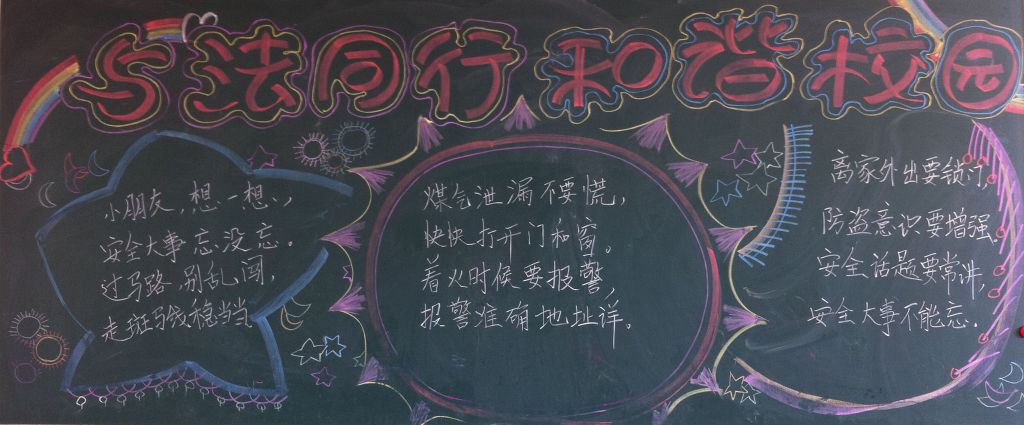 与法同行 和谐校园
小朋友,想一想,
安全大事忘没忘。
过马路,别乱闯,
走斑马线稳当当
煤气泄漏不要慌,
快快打开门和窗。
着火时候要报警,
报警准确地址详。
离家外出要锁门,
防盗意识要增强.
安全话题要常讲,
安全大事不能忘.